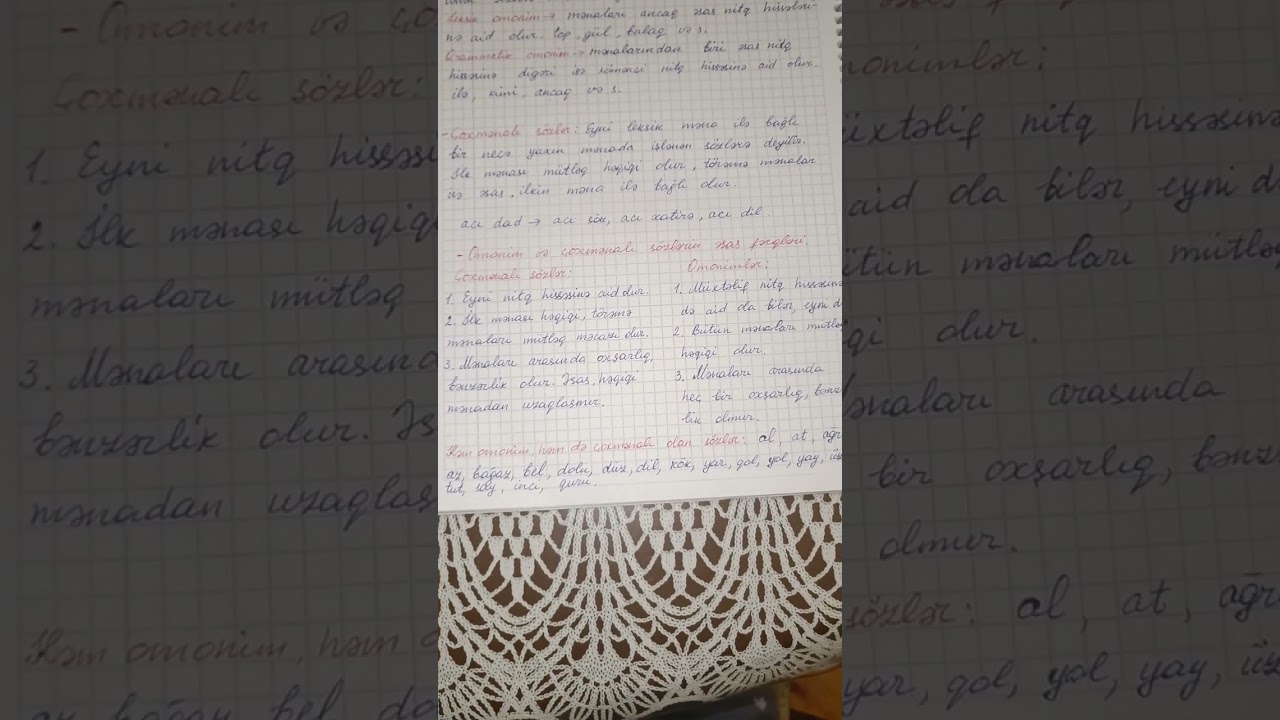 Leksik omonim → mənaları ancaq əsas nitq hissələri-
nə aid olur. top, gül, balaq və s.
Qrammatik omonim → mənalarından biri əsas nitq
hissəsinə digəri isə köməkçi nitq hissəsinə aid olur.
ilə, kimi, ancaq və s.
- Çoxmənalı sözlər: Eyni leksik məna ilə bağlı
bir neçə yaxın mənada işlənən sözlərə deyilir.
İlk mənası mütləq həqiqi olur, törəmə mənalar
isə əsas, ilkin məna ilə bağlı olur.
acı dad → acı söz, acı xatirə, acı dil.
- Omonim və çoxmənalı sözlərin əsas fərqləri.
Çoxmənalı sözlər:
1. Eyni nitq hissəsinə aiddir.
2. İlk mənası həqiqi, törəmə
mənaları mütləq məcazi olur.
3. Mənaları arasında oxşarlıq,
bənzərlik olur. Əsas, həqiqi
mənadan uzaqlaşmır.
Omonimlər:
1. Müxtəlif nitq hissəsinə
də aid da bilər, eyni d
2. Bütün mənaları mütləq
həqiqi olur.
3. Mənaları arasında
heç bir oxşarlıq, bənz
lik olmur.
Həm omonim, həm də çoxmənalı olan sözlər: al, at, ağr
az, boğaz, bel, dolu, düz, dil, kök, yar, qol, yol, yay, üz
tut, say, inci, quru.